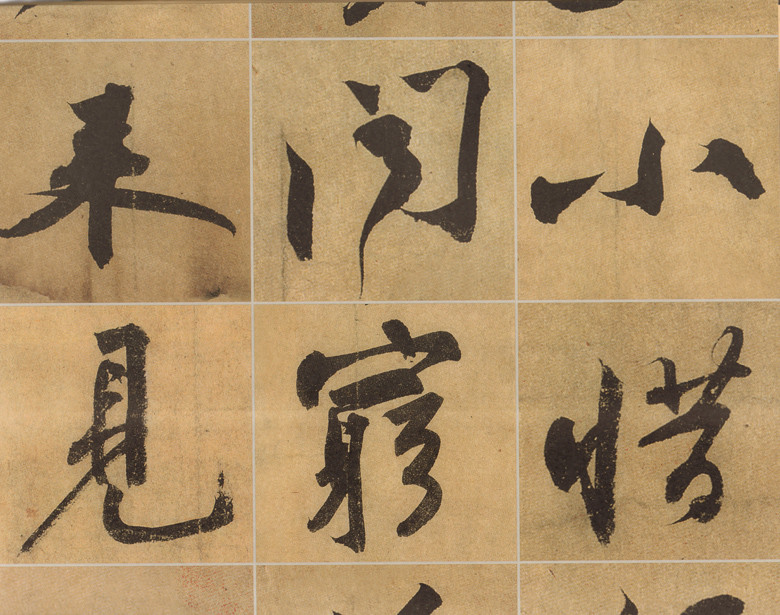 小惜
窮
来見